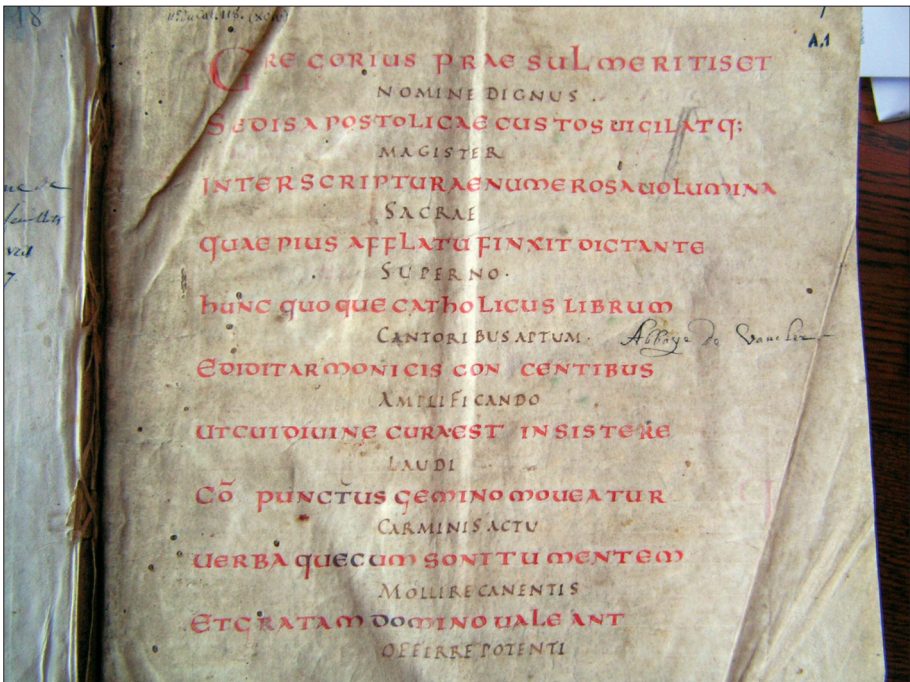 18
A.1
GREGORIUS PRAESUL MERITIS ET
NOMINE DIGNUS
SEDIS APOSTOLICAE CUSTOS UIGILATQ:
MAGISTER
INTER SCRIPTURAE NUMEROSA UOLUMINA
SACRAE
QUAE PIUS AFFLATU FINXIT DICTANTE
SUPERNO.
hUNC QUOQUE CAThOLICUS LIBRUM
CANTORIBUS APTUM. Abbaye de
EDIDIT ARMONICIS CONCENTIBUS
AMPLIFICANDO
UT CUI DIUINE CURA EST INSISTERE
LAUDI
CŌPUNCTUS GEMINO MOUEATUR
CARMINIS ACTU
UERBA QUE CUM SONITU MENTEM
MOLLIRE CANENTIS
ET GRATAM DOMINO UALEANT
OFFERRE POTENTI